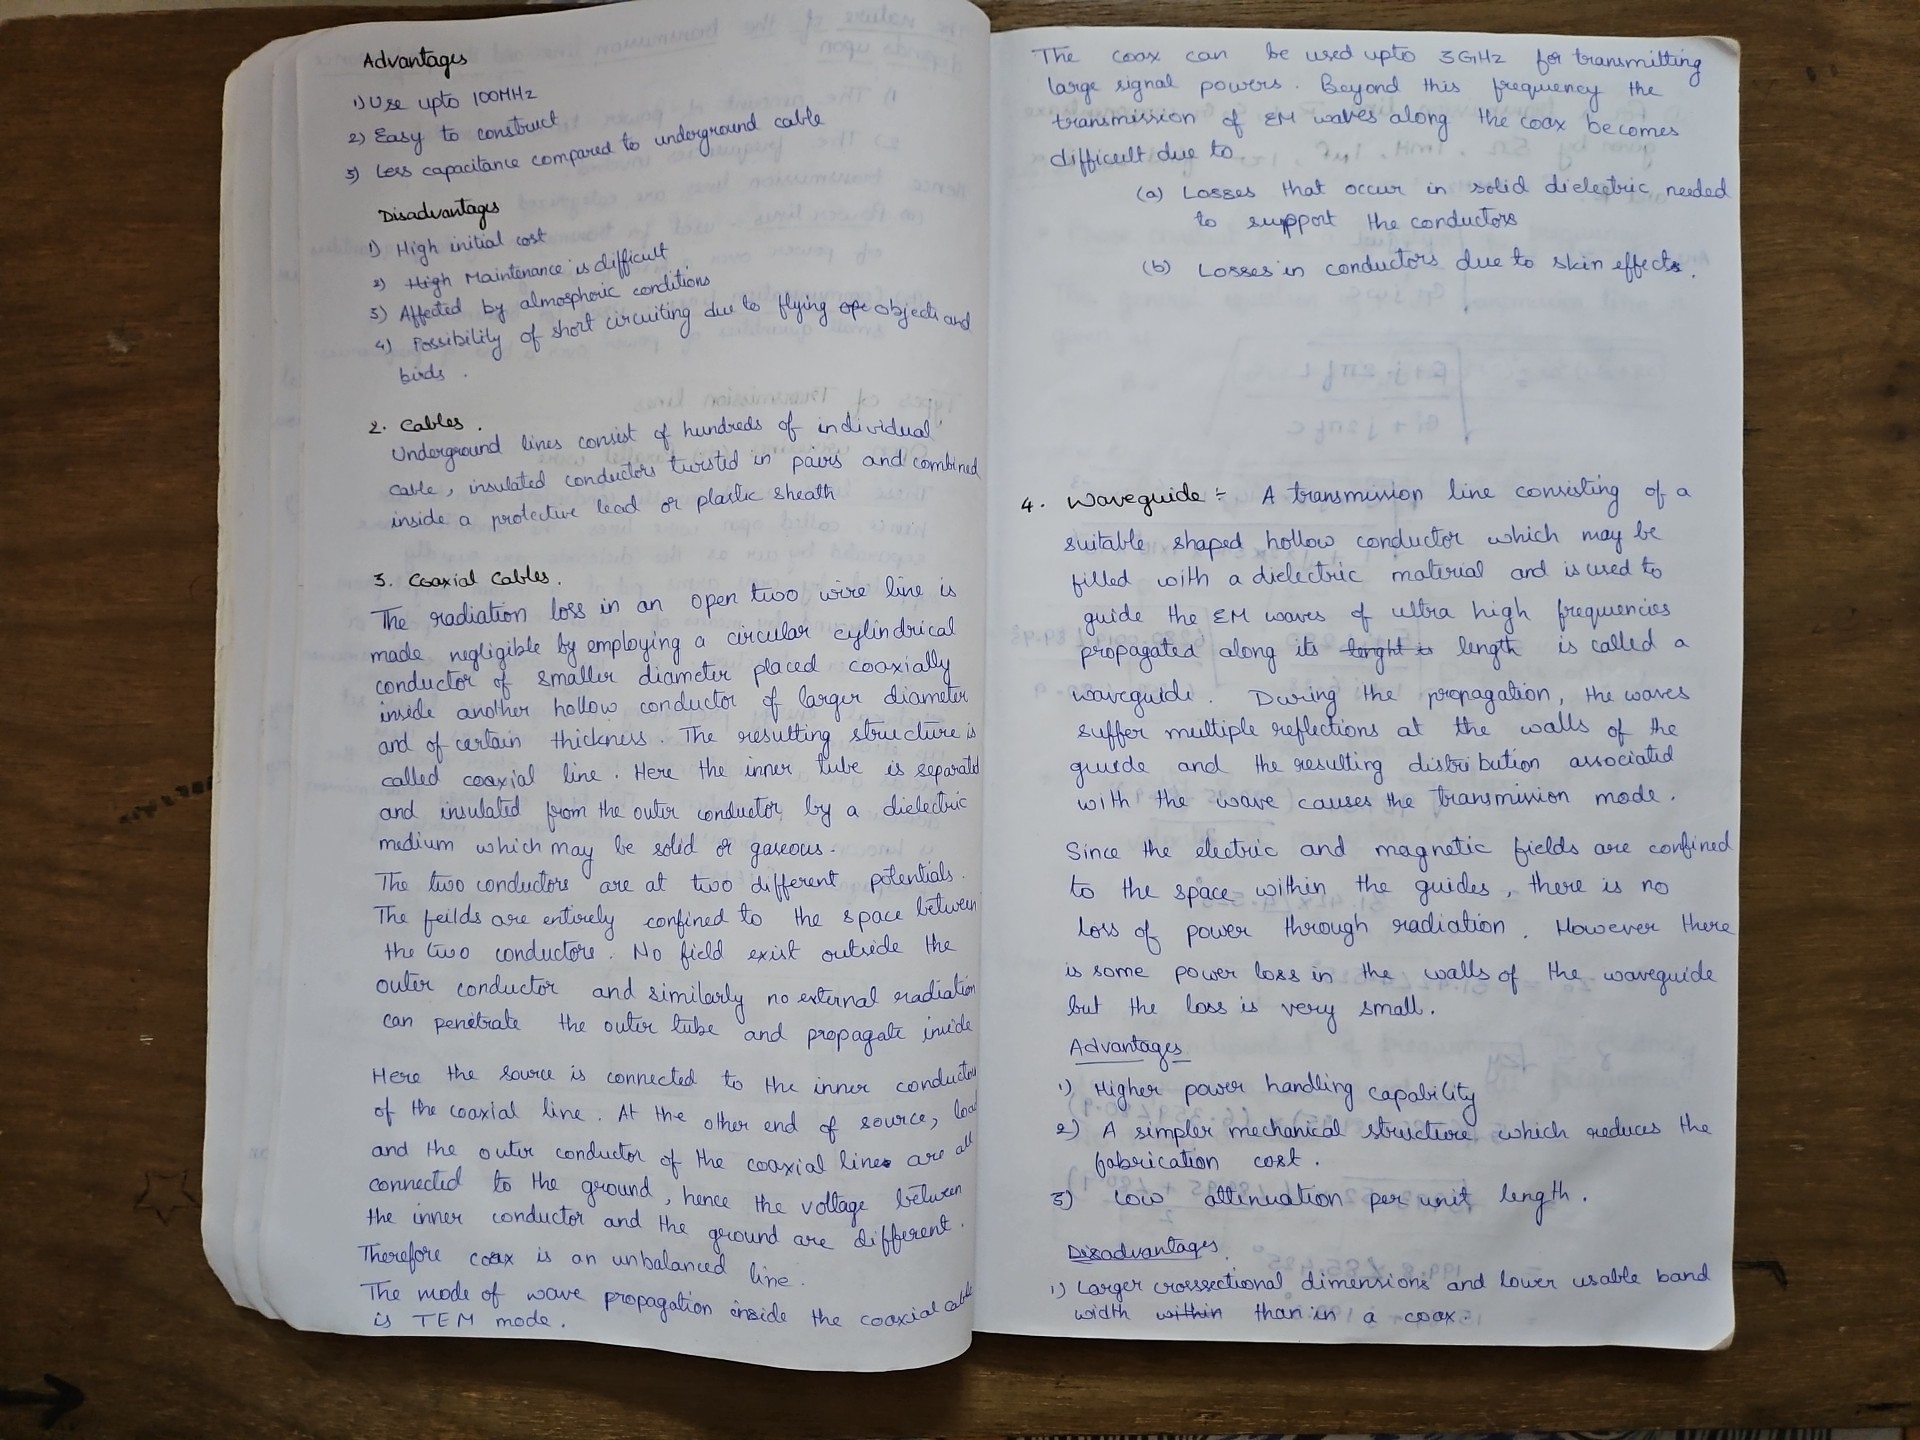 Advantages
1) Use upto 100MHz
2) Easy to construct
3) Less capacitance compared to underground cable
Disadvantages
1) High initial cost
2) High Maintenance is difficult
3) Affected by almospheric conditions
4) Possibility of short circuiting due to flying ope objects and
birds.
2. Cables.
Underground lines consist of hundreds of individual
cable, insulated conductors twisted in pairs and combined
inside a protective lead or plastic sheath
3. Coaxial Cables.
The radiation loss in an open two wire line is
made negligible by employing a circular cylindrical
conductor of smaller diameter placed coaxially
inside another hollow conductor of larger diameter
and of certain thickness. The resulting structure is
called coaxial line. Here the inner tube is separated
and insulated from the outer conductor by a dielectric
medium which may be solid or gaseous.
The two conductors are at two different potentials.
The feilds are entirely confined to the space between
the two conductors. No field exist outside the
outer conductor and similarly no external radiation
can penetrate the outer tube and propagate inside
Here the source is connected to the inner conductor
of the coaxial line. At the other end of source, load
and the outer conductor of the coaxial lines are all
connected to the ground, hence the voltage between
the inner conductor and the ground are different.
Therefore coax is an unbalanced line.
The mode of wave propagation inside the coaxial cable
is TEM mode.
The coax can be used upto 3GHz for transmitting
large signal powers. Beyond this frequency the
transmission of EM waves along the coax becomes
difficult due to
(a) Losses that occur in solid dielectric needed
to support the conductors
(b) Losses in conductors due to skin effects.
4. Waveguide :- A transmission line consisting of a
suitable shaped hollow conductor which may be
filled with a dielectric material and is used to
guide the EM waves of ultra high frequencies
propagated along its lenght is length is called a
waveguide. During the propagation, the waves
suffer multiple reflections at the walls of the
guide and the resulting distribution associated
with the wave causes the transmission mode.
Since the electric and magnetic fields are confined
to the space within the guides, there is no
loss of power through radiation. However there
is some power loss in the walls of the waveguide
but the loss is very small.
Advantages
1) Higher power handling capability
2) A simpler mechanical structure which reduces the
fabrication cost.
3) Low attenuation per unit length.
Disadvantages
1) Larger crosssectional dimensions and lower usable band
width within than in a coax.